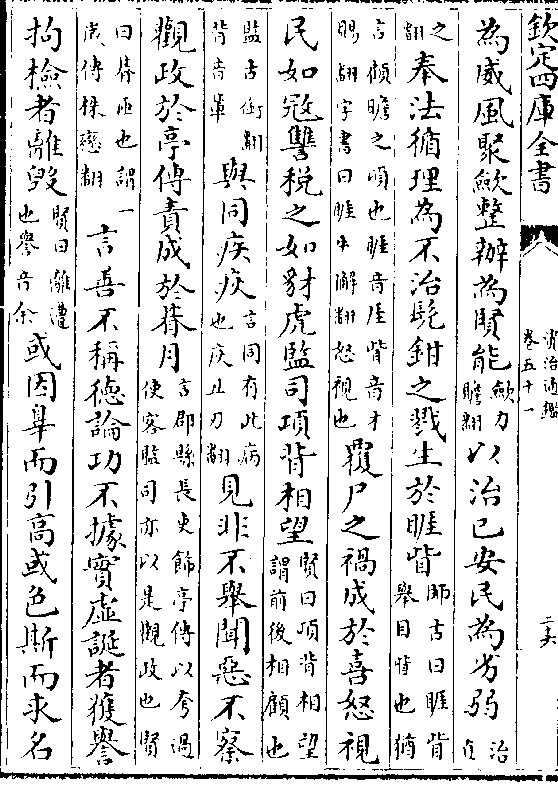 欽定四庫全書 資治通鑑 卷五十一
為威風聚斂整辦為賢能斂力贍翻以治已安民為劣弱治直
之翻奉法循理為不治髡鉗之戮生於睚眥師古曰睚眥舉目眥也猶
言傾瞻之頃也睚音厓眥音才賜翻字書曰睚牛懈翻怒視也覆尸之禍成於喜怒視
民如冦讐税之如豺虎監司項背相望賢曰項背相望謂前後相顧也
監古銜翻背音輩與同疾疢言同有此病也疢丑刃翻見非不舉聞惡不察
觀政於亭傳責成於朞月言郡縣長吏飾亭傳以夸過使客監司亦以是觀政也賢
曰朞匝也謂一歲傳株戀翻言善不稱德論功不據實虚誕者獲譽
拘檢者離毁賢曰離遭也譽音余或因辠而引高或色斯而求名